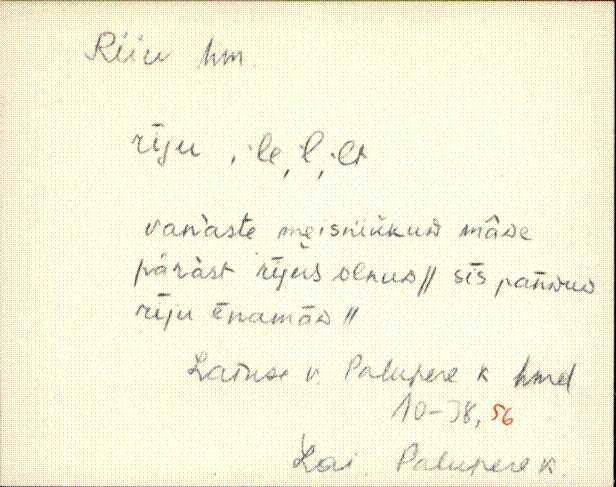 Riiu hm.
rīju, -le, -l, -lt
van̄aste meisnikkuᴅ māᴅe
pärä̀st rījùs olnuᴅ // sīs pan̄nuᴅ
rīju ēnamāᴅ //
Laiuse v. Palupere k hmd
10-38, 56
Lai. Palupere k.